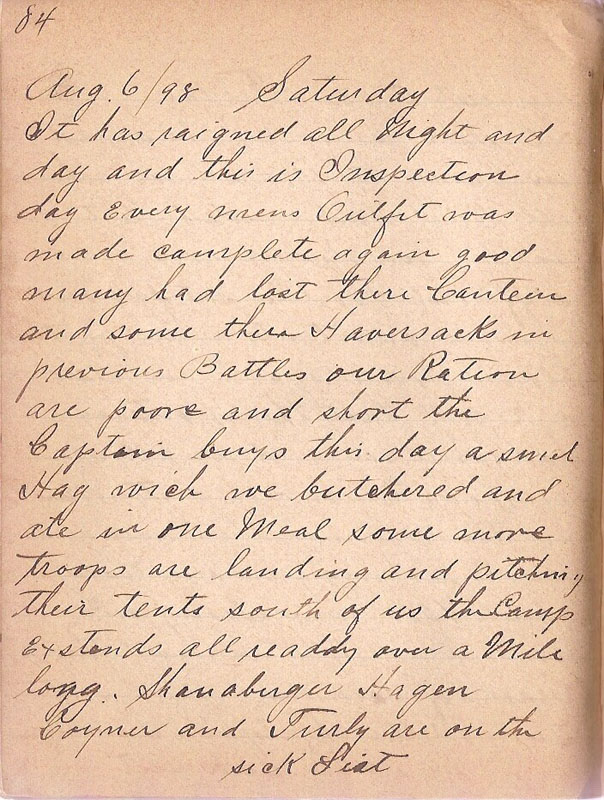 84
Aug. 6/98 Saturday
It has raigned all Night and
day and this is Inspection
day Every mens Outfit was
made camplete again good
many had lost there Canteen
and some there Haversacks in
previous Battles our Ration
are poore and short the
Captain buys this day a smel
Hag wich we butchered and
ate in one Meal some more
troops are landing and pitching
their tents south of us the Camp
Extends all readdy over a Mile
long. Shanaberger Hagen
Coyner and Turly are on the
sick List